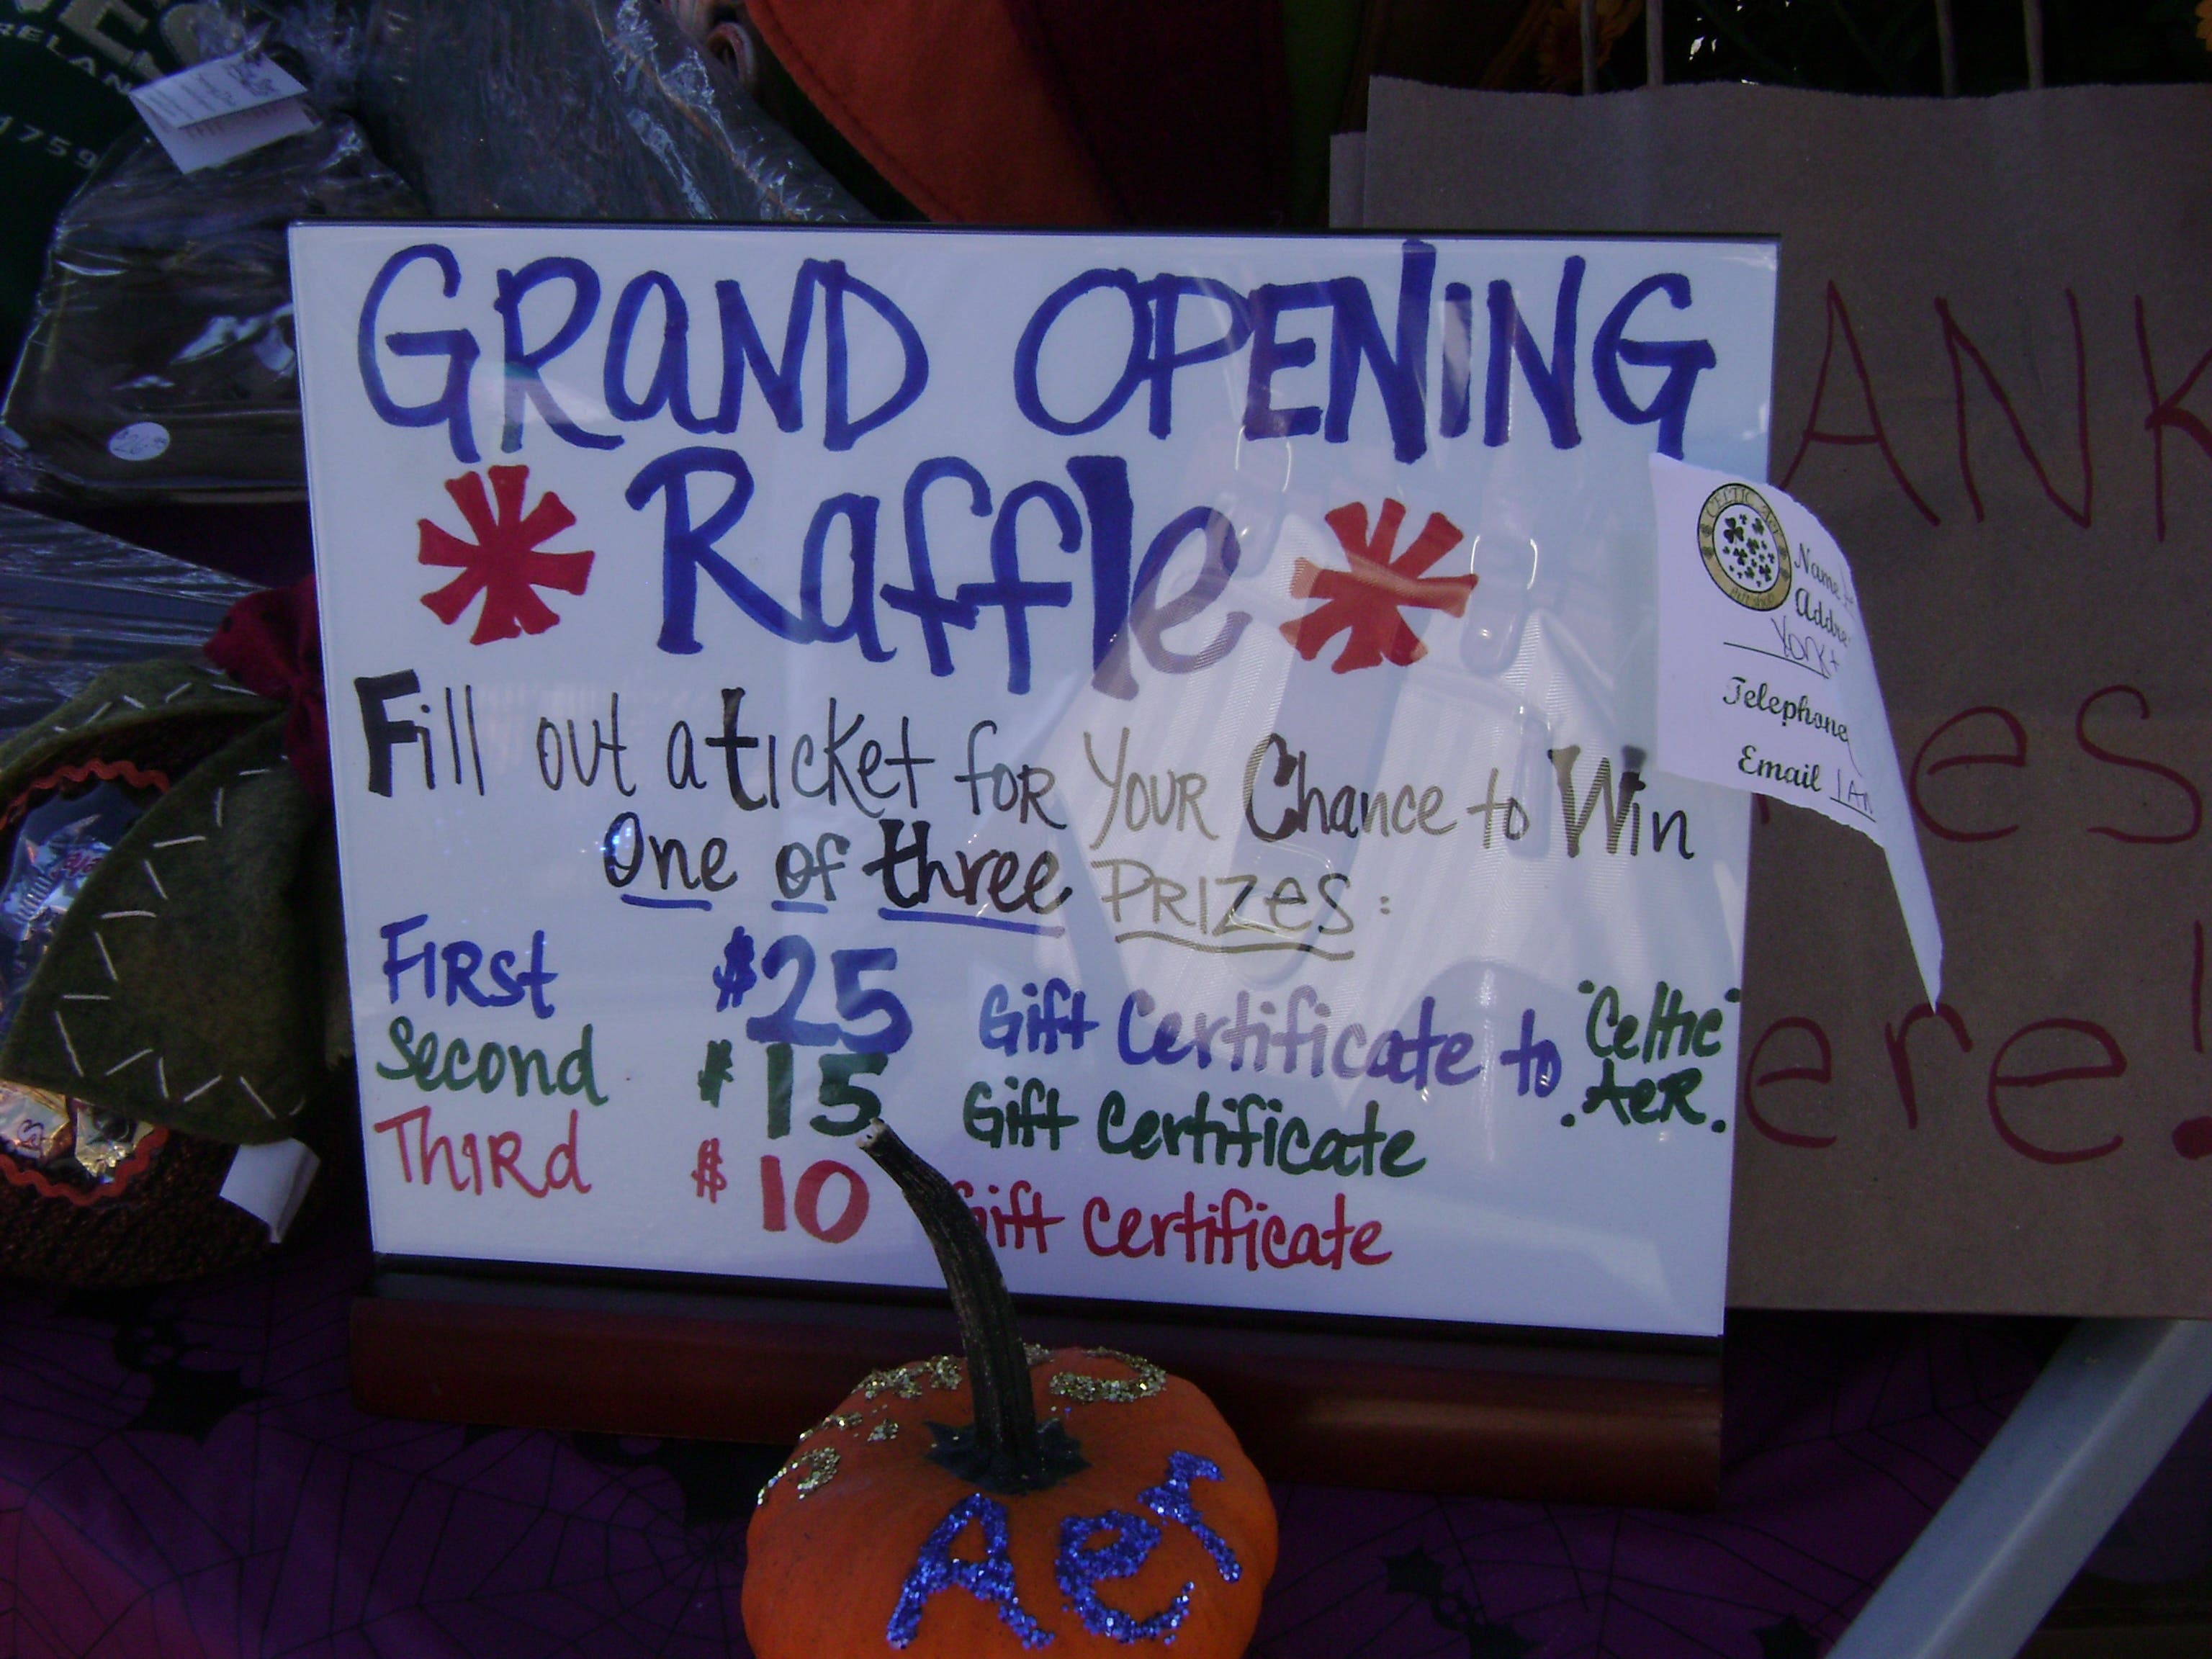 RELAN
1759
GRAND OPENING
Raffle
Fill out a ticket for Your Chance to Win
One of three PRIZES:
First $25 Gift Certificate to "Celtic"
.AER.
Second $15 Gift Certificate
Third $10 Gift Certificate
CELTIC Aer
Name
Addre
York
Telephone
Email IAN
ANK
es
ere!
Aer